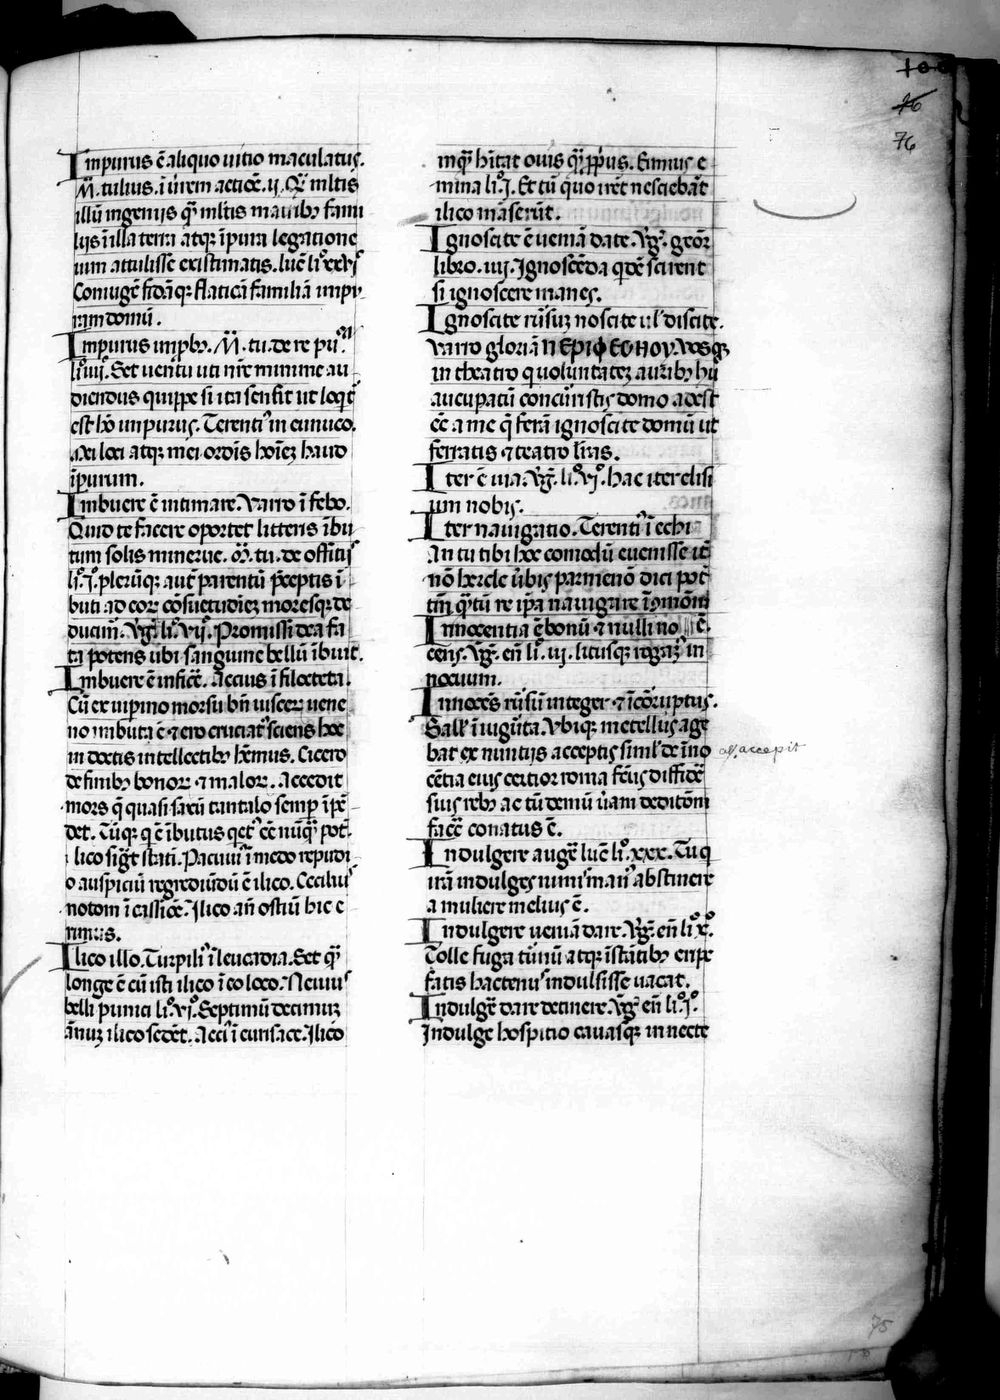 Inpurus ē aliquo uitio maculatus.
M̄. tulius. ī ūrem actiōē. ij. Qꝫ mltis
illū ingeniis qꝫ mltis maribꝫ famu
liis ī illa terra atqꝫ īpura legatione
ium attulisse existimatis. lucē li° xxvi°
Coniugē fidā qꝫ flaticā familiā inpu
ram domū.
Inpurus inprobꝫ. M̄. tu. de re pu.ᶜᵃ
li° iiij°. Set uerītu uti nr̄e minime au
diendus quippe si ita sensit ut loqt̄
est hō inpurus. Terenti⁹ in eunuco.
Mei loci atqꝫ mei ordīs hoīeꝫ haud
īpurum.
Inbuere ē intimare. Varro ī febo.
Quid te facere oportet litteris ību
tum solis minerue. M̄. tu. de offitiis
li° j°. plerūqꝫ aut̄ parentū p̄ceptis ī
buti ad eoꝝ cōsuetudīeꝫ moresqꝫ de
ducim⁹. V̄g. li° vij°. Promissi dea fa
cta potens ubi sanguine bellū ībuit.
Inbuere ē inficē. Accius ī filocteta.
Cū ex uiprino morsu bn̄ uiscerꝝ uene
no inbuta ē ⁊ ero cruciat⁹ sciens hoc
in doctis intellectibꝫ hēmus. Cicero
de finibꝫ bonoꝝ ⁊ maloꝝ. Accedit
mors q̄ quasi saxū tantalo semp īpē
det. Tūqꝫ q ē ībutus qet⁹ eē nūqꝫ pot̄.
Ilico sigt̄ stati. Pacuui⁹ ī medo repudi
o auspiciū regrediūdū ē ilico. Cecilius
notom ī cassicē. Ilico an̄ ostiū hic e
rimus.
Ilico illo. Turpili⁹ ī leucadia. Set qꝫ
longe ē eū isti ilico ī eo loco. Neuiu⁹
belli punici li° vi°. Septimū decimuꝫ
ānuꝫ ilico sedēt. Acci⁹ ī eurisace. Ilico
inqꝫ hītat ouis qꝫ ꝓpus. Ennius e
mina li° j. Et tū quo irēt nesciebāt
ilico māserūt.
Ignoscite ē ueniā date. V̄g. geōr
libro. iiij. Ignoscēda qdē scirent
si ignoscere manes.
Ignoscite rūsuꝫ noscite ul discite.
Varro gloriā ΠΕΡΙΦΕΟΗΟΥ. Vosqꝫ
in theatro q uoluntateꝫ auribꝫ hū
aucupatū concūristis domo adest
eē a me q ferā ignoscite domū ut
ferratis ⁊ teatro līras.
Iter ē uia. V̄g. li° vj°. hac iter elisi
um nobis.
Iter nauigatio. Terenti⁹ ī echi
An tu tibi hoc comodū euenisse īt
nō hercle ūbis parmenō dici pot̄
tm̄ qꝫtū re ip̄a nauigare īꝯmōm̄
Innocentia ē bonū ⁊ nulli no ē.
cens. V̄g. en̄ li°. vi. litusqꝫ rogaꝫ in
nocuum.
Innocēs rūsū integer ⁊ īcoruptus.
Sall⁹ ī iugūta. Vbiqꝫ metellus age
bat ex nuntijs acceptis simil de īno
cētia eius certior roma fēus diffidē
suis rebꝫ ac tū demū ūam deditōm̄
facē conatus ē.
Indulgere augē lucē li° xxx. Tu q
irā indulges nimi⁹ man⁹ abstinere
a muliere melius ē.
Indulgere ueniā dare. V̄g. en̄ li° x°.
Tolle fuga tūnū atqꝫ īstātibꝫ eripe
fatis hactenu⁹ indulsisse uacat.
Indulgē dare detinere. V̄g. en̄ li° j°.
Indulge hospitio causasqꝫ innecte
accepit
100
76
76
75